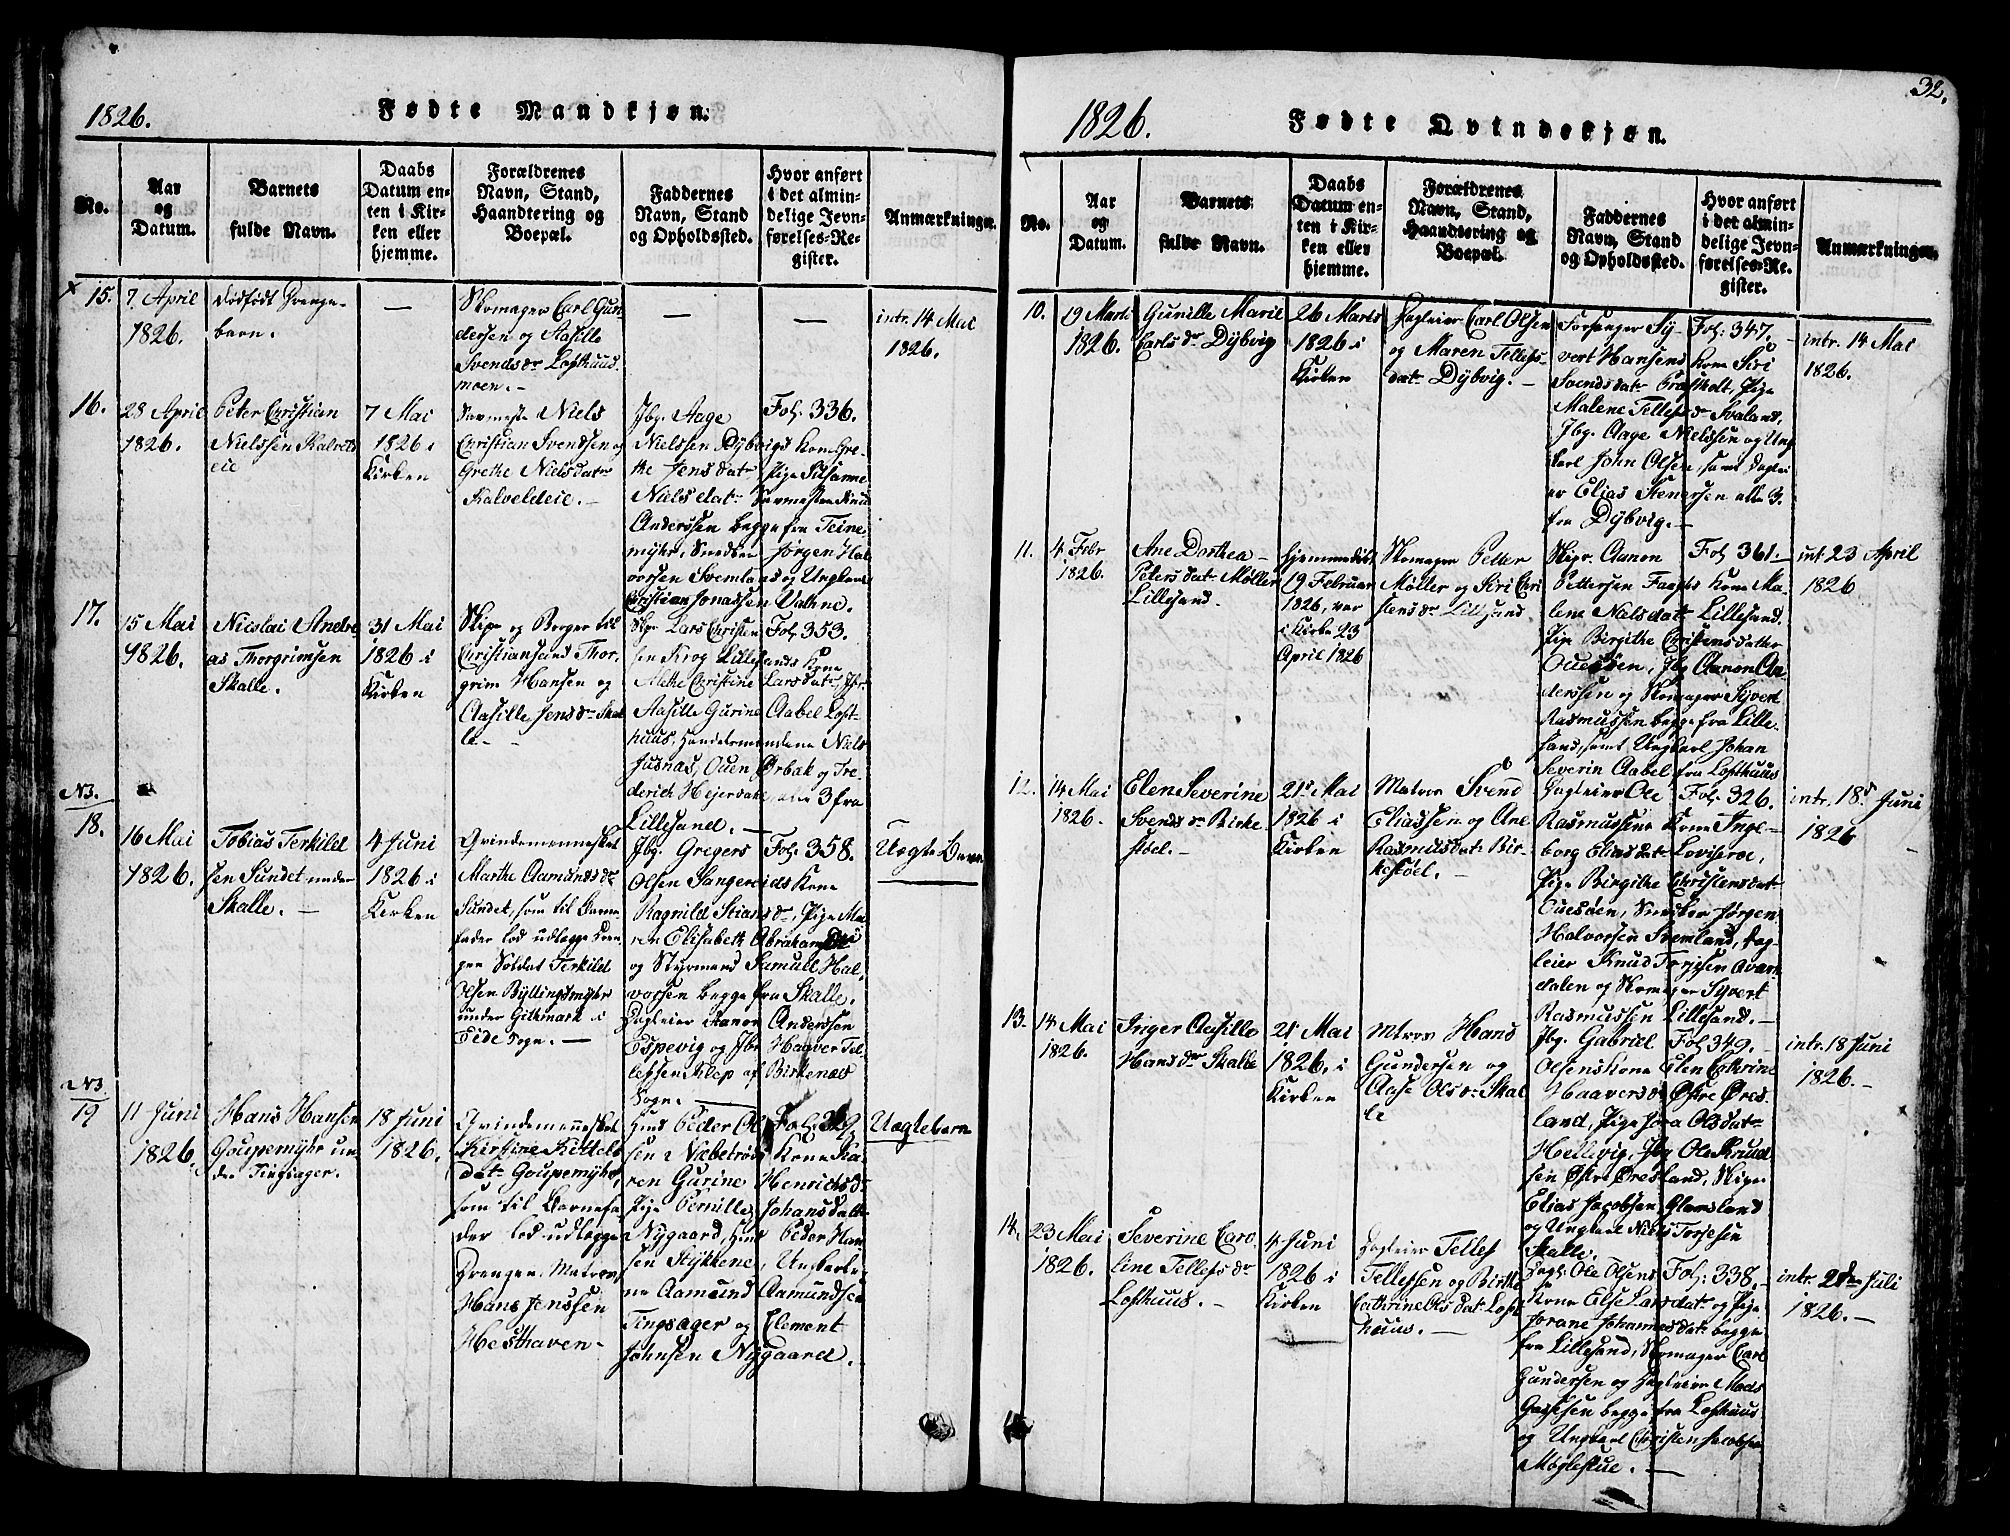 1826.
Fødte Mandkjøn.
No.
Aar
og
Datum.
Barnets
fulde Navn.
Daabs
Datum en-
ten i Kir-
ken eller
hjemme.
Forældrenes
Navn, Stand,
Haandtering og
Boepæl.
Faddernes
Navn, Stand
og Opholdssted.
Hvor anført
i det almin-
delige Jevn-
førelses-Re-
gister.
Anmærkninger.
15.
7 April
1826.
dødfødt Drenge-
barn.
—
Skomager Carl Gun-
dersen og Aasille
Svendsdr Lofthuus
moen. -
—
—
intr. 14 Mai
1826.
16.
28 April
1826.
Peter Christian
Nielssen Kalveld
eie
7 Mai
1826 i
Kirken
Niels
Christian Svendsen og
Grethe Nielsdatr
Kalveldeie. —
Jbg. Aage
Nielssen Dybvigs Kone Gre-
the Jensdatr Pige Susanne
Nielsdatr Knud
Anderssen begge fra Teine-
myhr, Snedker Jørgen Hal
vorsen Svemland og Ungkarl
Christian Jonassen Vathne.
Fol. 336.
17.
15 Mai
1826.
Nicolai Andre
as Thorgrimsen
Skalle.
31 Mai
1826 i
Kirken
Skipr og Borger til
Christiansand Thor-
grim Hansen og
Aasille Jensdr Skal
le. -
Skpr Lars Christen
sen Krog Lillesands Kone
Methe Christine Larsdatr, Jfr.
Aasille Gurine Aabel Loft-
huus, Handelsmændene Niels
Jusnas, Ouen Ørbak og Fre-
derich Hejerdahl, alle 3 fra
Lillesand. —
Fol. 353.
N3.
18.
16 Mai
1826.
Tobias Terkild
sen Sundet under
Skalle. —
4 Juni
1826 i
Kirken
Qvindemennesket
Marthe Aamundsdr
Sundet, som til Barne-
fader lod udlægge Dren-
gen Soldat Terkild
Olsen Byllingsmyhr
under Gitmark i
Eide Sogn. —
Jbg. Gregers
Olsen Sangereids Kone
Ragnild Stiansdr, Pige Ma
ren Elisabeth Abrahamsdr
og Styrmand Samuel Hal-
vorsen begge fra Skalle.
Dagleier Aanon Anderssen
Espevig og Jbr Haaver Tel-
lefssen Klep af Birkenæs
Sogn. —
Fol. 358.
Uægte Barn
N3
19
11 Juni
1826.
Hans Hansen
Goupemyhr un-
der Tingsager.
18 Juni
1826.
Qvindemennesket
Kirstine Kittels
datr Goupemyhr,
som til Barnefa-
der lod udlægge
Drengen Matros
Hans Jenssen
Hesthaven -
Huusm. Peder Ol
sen Næbetrøes Kone Ka-
ren Gurine Henrichsdr
Pige Pernille Johansdatr
Nygaard, Huusm. Peder Han
sen Stykkene, Ungkarle-
ne Aamund Aamundsen
Tingsager og Clement
Johnsen Nygaard.
Uægtebarn
32.
1826.
Fødte Qvindekjøn.
No.
Aar
og
Datum.
Barnets
fulde Navn.
Daabs
Datum en-
ten i Kir-
ken eller
hjemme.
Forældrenes
Navn, Stand,
Haandtering og
Boepæl.
Faddernes
Navn, Stand
og Opholdssted.
Hvor anført
i det almin-
delige Jevn-
førelses-Re-
gister.
Anmærkninger.
10.
19 Marts
1826.
Gunille Marie
Carlsdr Dybvig
26 Marts
1826 i
Kirken
Dagleier Carl Olsen
og Maren Tellefs-
datr Dybvig. —
Forsanger Sy-
vert Hansens Kone Siri
Svendsdatr Præstholt, Pige
Malene Tellefsdr Svaland,
Jbg. Aage Nielssen og Ung
karl John Olsen, samt Daglei
er Elias Stenersen alle 3
fra Dybvig. —
Fol. 347.
intr. 14 Mai
1826.
11.
4 Febr
1826.
Ane Dorthea
Petersdatr Møller
Lillesand.
hjemmedøbt
19 Februar
1826, var
i Kirke 23
April 1826
Skomager Petter
Møller og Siri Chri
stensdr Lillesand.
Skipr. Aanon
Pettersen Kone Ma-
lene Nielsdatr Lillesand.
Pige Birgithe Christensdatter
Ouesøen, Jbg Aanon An
derssen og Skomager Syvert
Rasmussen begge fra Lille-
sand, samt Ungkarl Johan
Severin Aabel fra Lofthuus
Fol 361.
intr 23 April
1826
12.
14 Mai
1826.
Elen Severine
Svendsdr Birke
støel. -
21 Mai
1826 i
Kirken
Matros Svend
Eliassen og Ane
Rasmusdatr Bir-
kestøel. -
Dagleier Ole
Rasmussens Kone Inge-
borg Eliasdatr Loviseroe,
Pige Birgithe Christensdatr
Ouesøen, Snedker Jørgen
Halvorssen Svemland, Dag-
leier Knud Terjesen
dalen og Skomager Syvert
Rasmussen Lillesand. —
Fol. 326.
intr. 18 Juni
1826
13.
14 Mai
1826.
Inger Aasille
Hansdr Skalle
21 Mai
1826, i
Kirken
Matros Hans
Gundersen og
Aase Olsdr Skal
le
Jbg. Gabriel
Olsens Kone Elen Cathrine
Haaversdr Østre Øres-
land, Pige Jora Olsdatr
Hellevig, Jbg Ole Knud
sen Østre Øresland, Skipr
Elias Jacobsen Glamsland
og Ungkarl Niels Torjesen
Skalle.
Fol 349. -
intr. 18 Juni
1826. —
14.
23 Mai
1826.
Severine Caro
line Tellefsdr
Lofthuus. -
4 Juni
1826 i
Kirken
Dagleier Tellef
Tellefsen og Birthe
Cathrine Olsdatr Loft
huus. —
Dagl. Ole Olsens
Kone Else Larsdatr og Pige
Jorane Johannesdatr begge
fra Lillesand, Skomager Carl
Gundersen og Dagleier Mads
begge fra Lofthuus
og Ungkarl Christen Jacobsen
Møglestue. —
Fol. 338. -
intr. 2den Juli
1826. —
15